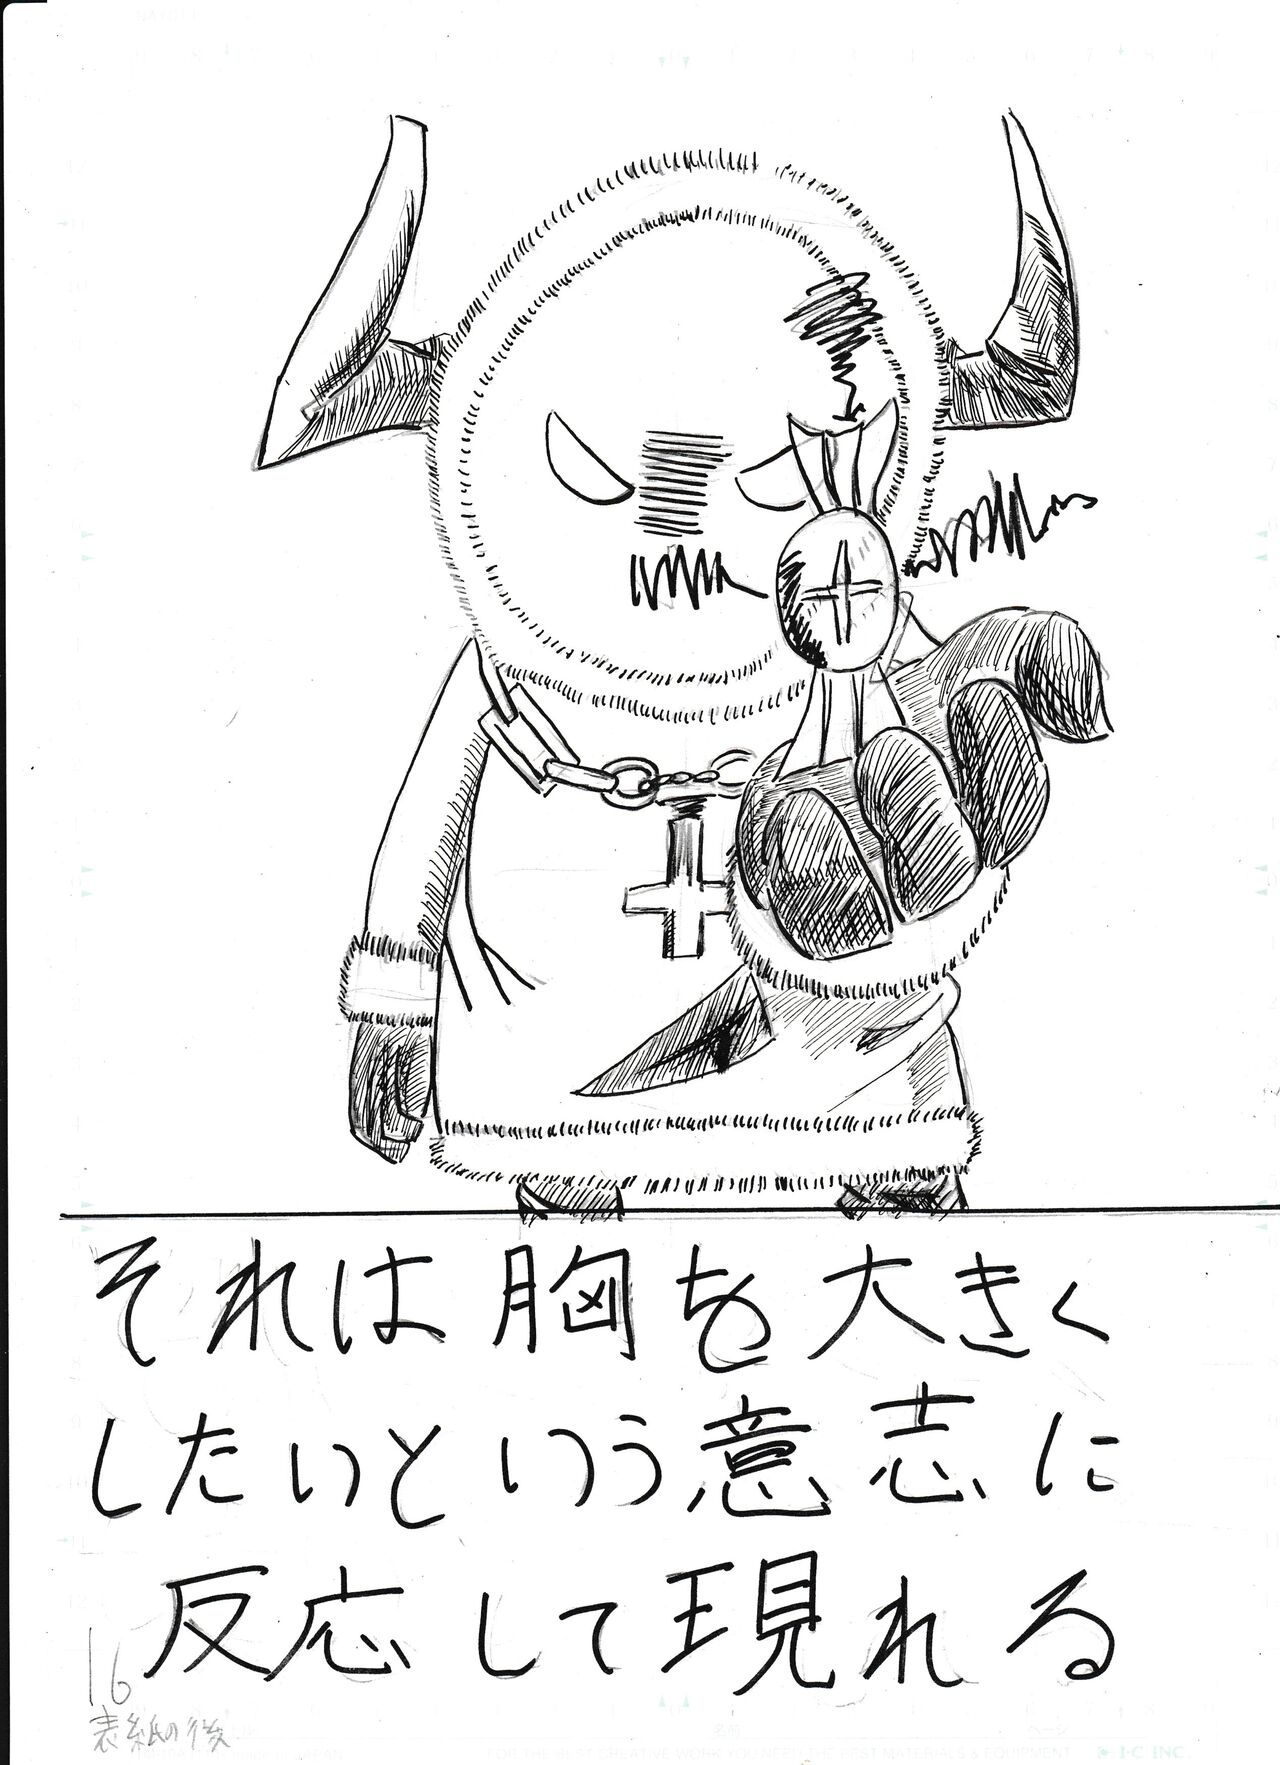 それは胸を大きく
したいという意志に
反応して現れる
16
表紙の後
名前
ページ
FOR THE BEST CREATIVE WORK YOU NEED THE BEST MATERIALS & EQUIPMENT
I·C INC.